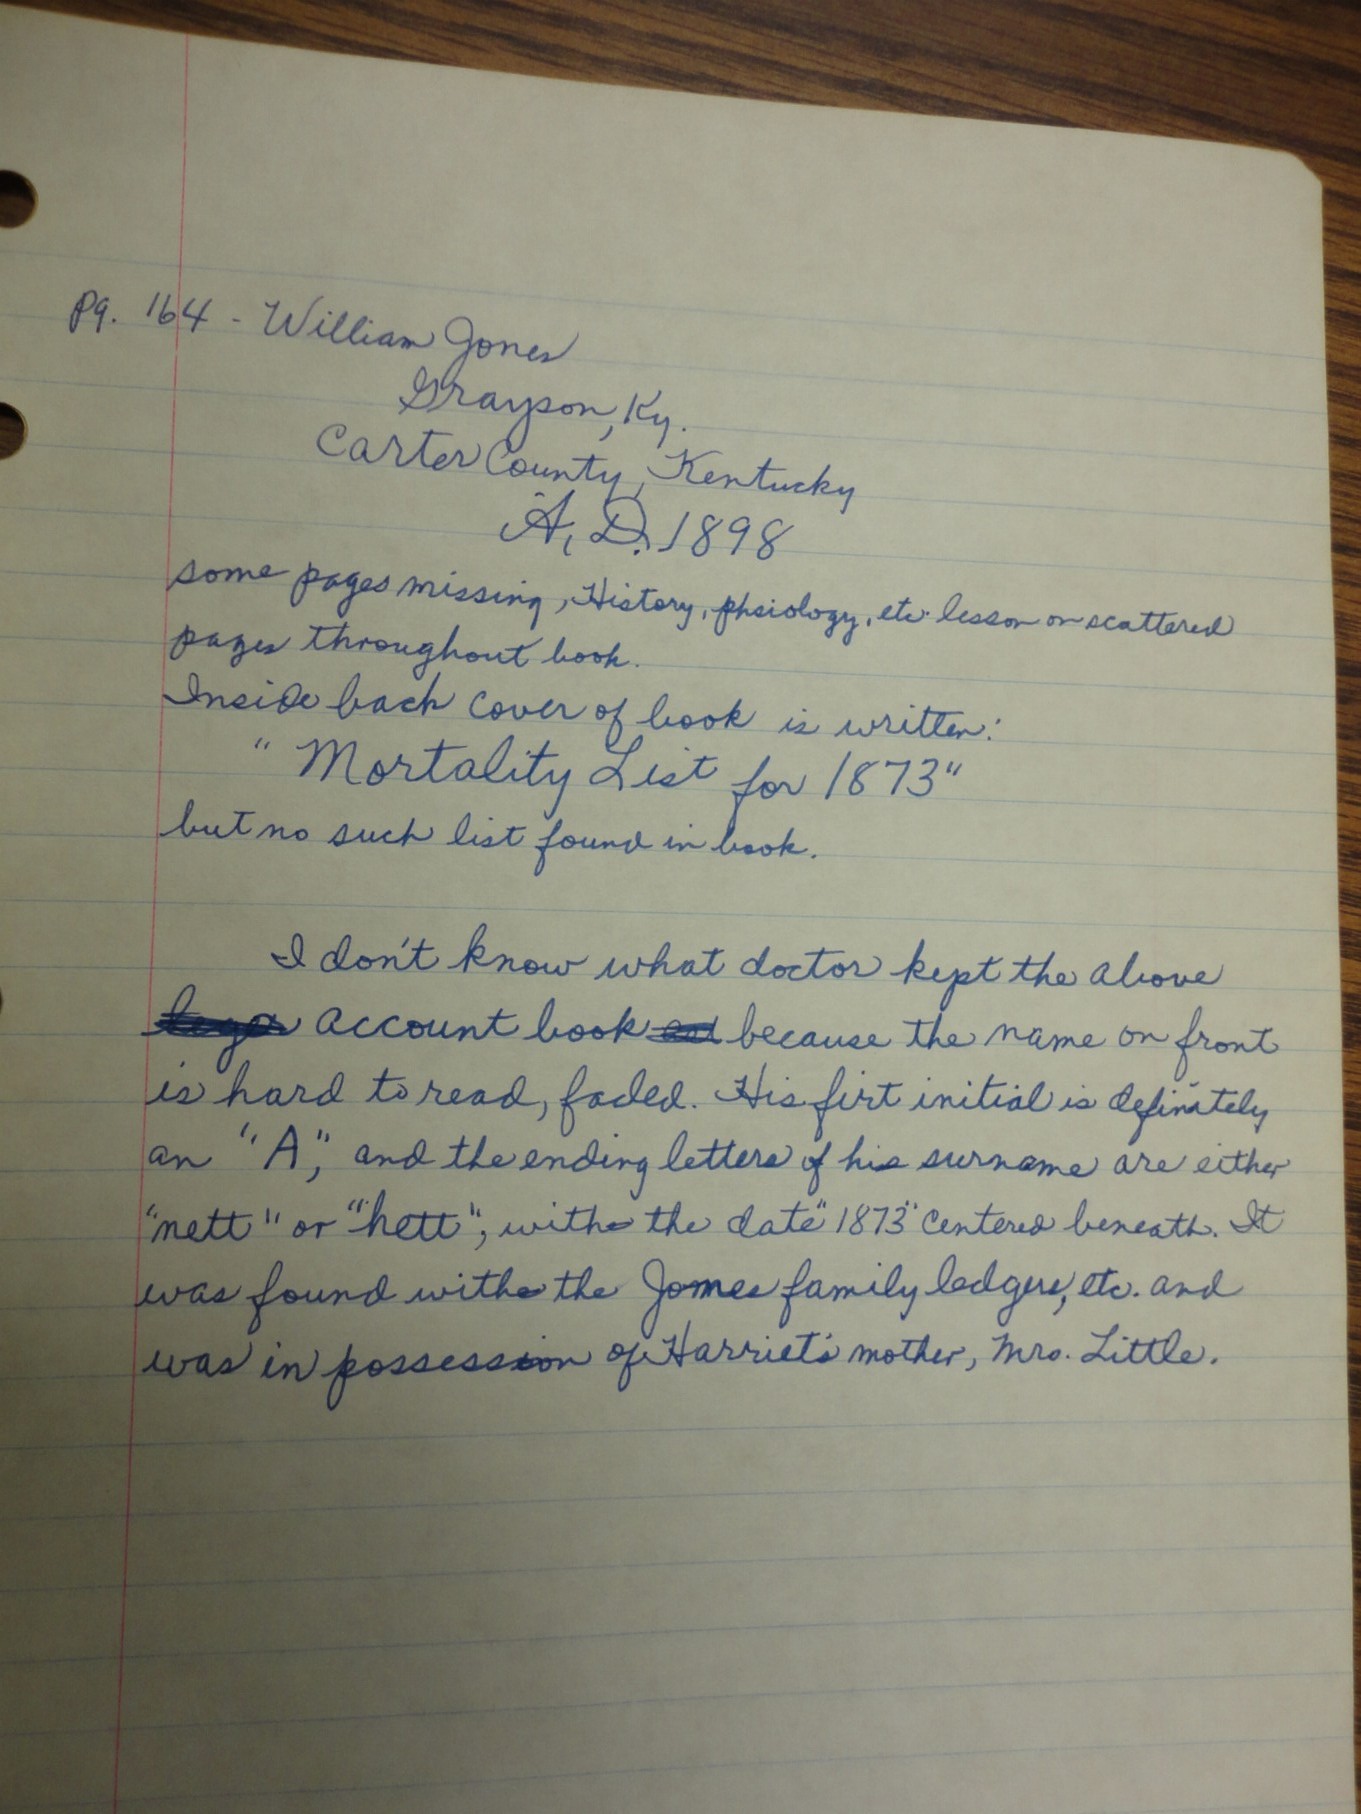 Pg. 164 - William Jones
Grayson, Ky.
Carter County, Kentucky
A, D. 1898
some pages missing, History, phsiology, etc. lesson on scattered
pages throughout book.
Inside back cover of book is written:
"Mortality List for 1873"
but no such list found in book.
I don't know what doctor kept the above
account book because the name on front
is hard to read, faded. His firt initial is definately
an "A", and the ending letters of his surname are either
"nett" or "hett", with the date "1873" centered beneath. It
was found with the Jones family ledgers, etc. and
was in possession of Harriet's mother, Mrs. Little.